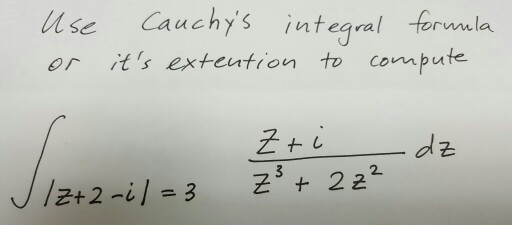 Use Cauchy's integral formula
or it's extention to compute
∫_{|z+2-i|=3} \frac{z+i}{z^3+2z^2} dz